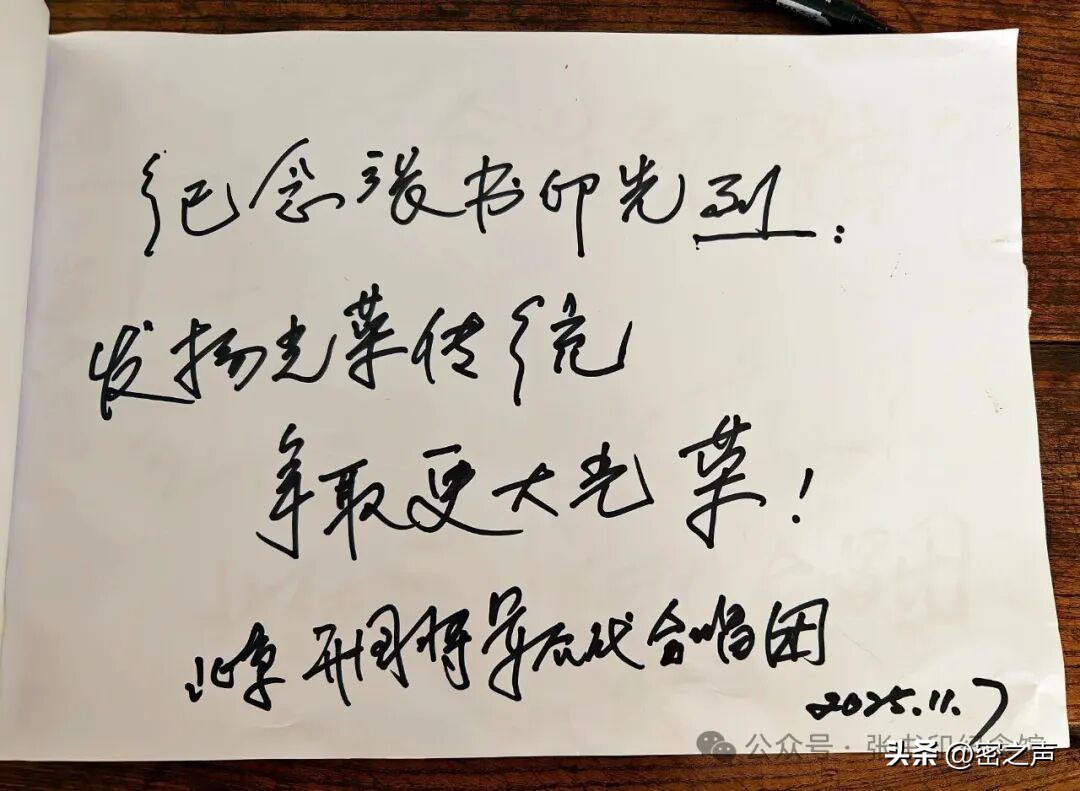 纪念张书印先烈：
发扬光荣传统
争取更大光荣！
北京开国将军后代合唱团
2025.11.7
公众号·张书印纪念馆
头条 @密之声